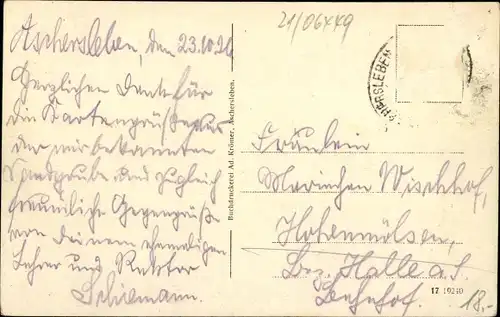 Aschersleben, den 23.10.20
Herzlichen Dank für
die Kartengrüße aus
der mir bekannten
Sandgrube und zugleich
freundliche Gegengrüße
von deinem ehemaligen
Lehrer und Rektor
Schiemann.
Buchdruckerei Ad. Krömer, Aschersleben.
21/06449
ASCHERSLEBEN
Fräulein
Marinchen Wischhof,
Hohenmölsen,
Bez. Halle a. S.
Bahnhof.
17 19240
18.-